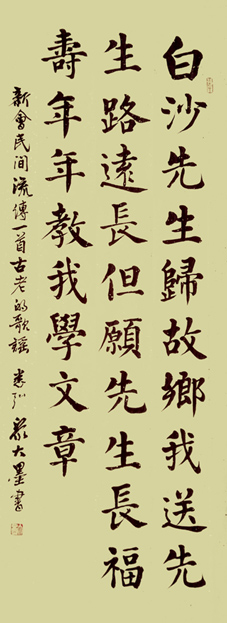 白沙先生歸故鄉我送先
生路遠長但願先生長福
壽年年教我學文章
新會民間流傳一首古老的歌謠 大墨書